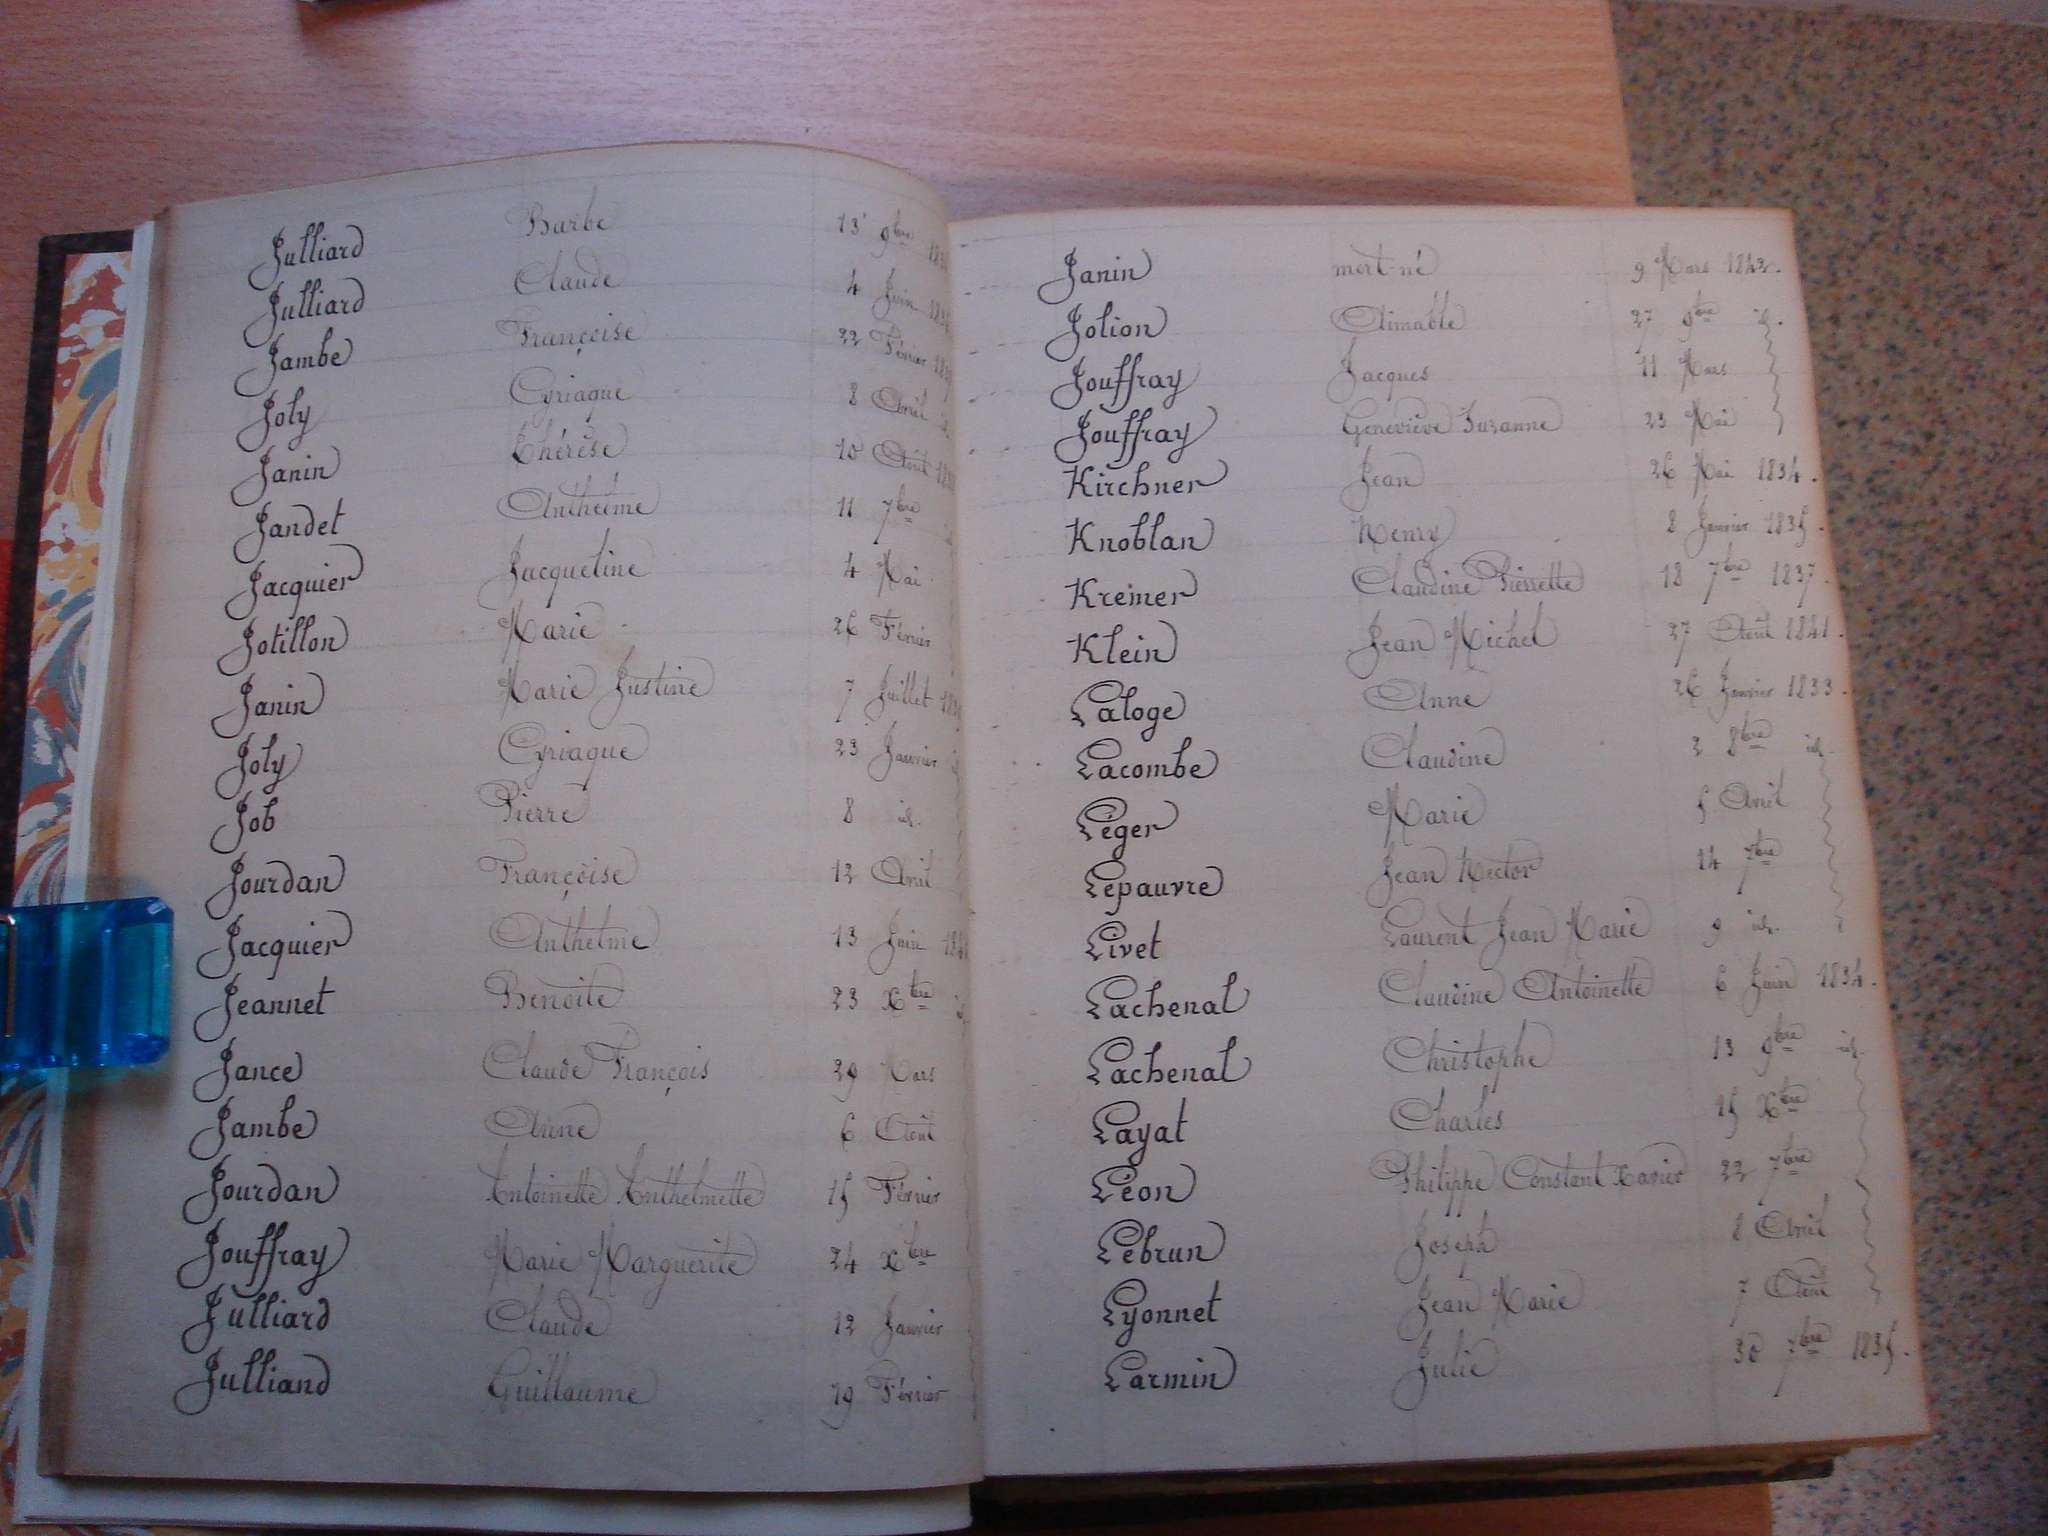 Julliard Barbe 13 9bre
Julliard Claude 4 Juin
Jambe Françoise 22 Février
Joly Cyriaque 8 Avril id.
Janin Thérèse 10 Août
Jandet Anthelme 11 7bre
Jacquier Jacqueline 4 Mai
Jotillon Marie 26 Février
Janin Marie Justine 7 Juillet
Joly Cyriaque 23 Janvier
Job Pierre 8 id.
Jourdan Françoise 12 Avril
Jacquier Anthelme 13 Juin
Jeannet Benoite 23 Xbre id.
Jance Claude François 29 Mars
Jambe Anne 6 Août
Jourdan Antoinette Anthelmette 15 Février
Jouffray Marie Marguerite 24 Xbre
Julliard Claude 12 Janvier
Julliand Guillaume 19 Février
Janin mort-né 9 Mars 1842.
Jolion Aimable 27 9bre id.
Jouffray Jacques 11 Mars
Jouffray Geneviève Suzanne 23 Mai
Kirchner Jean 26 Mai 1834.
Knoblan Henry 8 Janvier 1835.
Kreimer Claudine Pierrette 18 7bre 1837.
Klein Jean Michel 27 Août 1841.
Laloge Anne 26 Janvier 1833.
Lacombe Claudine 2 8bre id.
Léger Marie 5 Avril
Lepauvre Jean Hector 14 7bre
Livet Laurent Jean Marie 9 id.
Lachenal Claudine Antoinette 6 Juin 1834.
Lachenal Christophe 13 9bre id.
Layat Charles 15 Xbre
Léon Philippe Constant Xavier 22 7bre
Lebrun Joseph 8 Avril
Lyonnet Jean Marie 7 Août
Larmin Julie 30 7bre 1835.